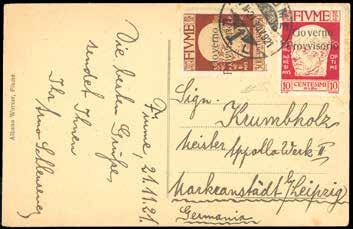 Fiume, 21.11.21.
Die besten Grüße,
sendet Ihnen
Ihr Arno
Albano Werner, Fiume
FIUME
Governo
Provvisorio
FIUME
Governo
Provvisorio
10 CENTESIMI 10
Sign.
Krumbholz
Meister Apollo Werk II
Markranstädt b/Leipzig
Germania